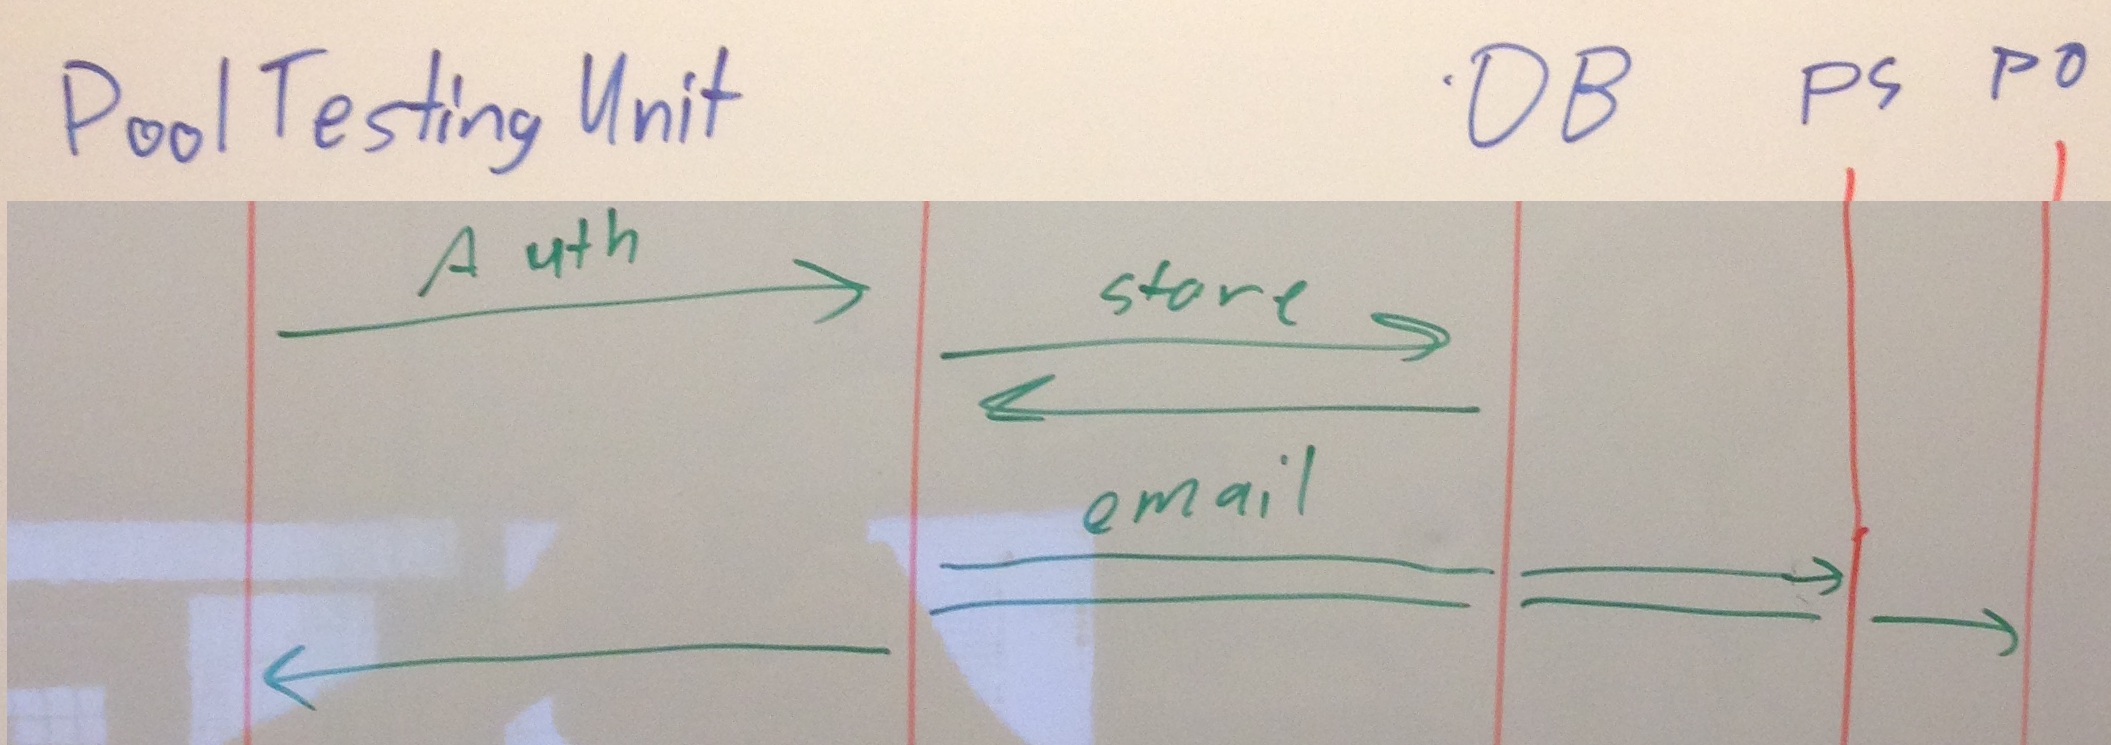 Pool Testing Unit DB PS PO
Auth
store
email